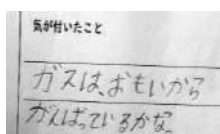 気が付いたこと
ガスは、おもいから
がんばっているかな